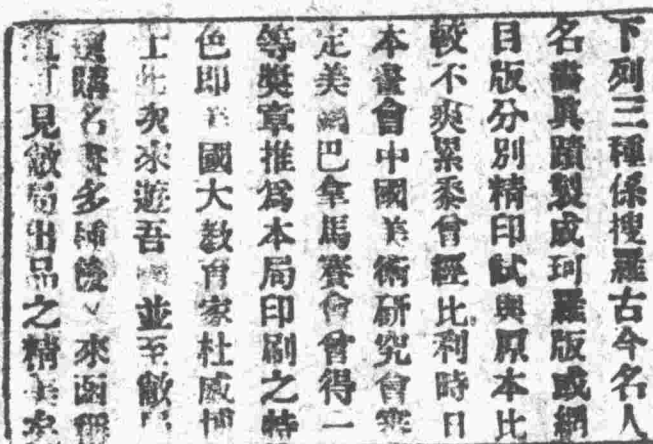 下列三種係搜羅古今名人
名畵眞蹟製成珂羅版或網
目版分別精印試與原本比
較不爽累黍曾經比利時日
本畫會中國美術研究會審
定美國巴拿馬賽會曾得一
等奬章推爲本局印刷之特
色即美國大教育家杜威博
士此次來遊吾國並至敝局
選購名畫多種後又來函稱
見敝局出品之精美